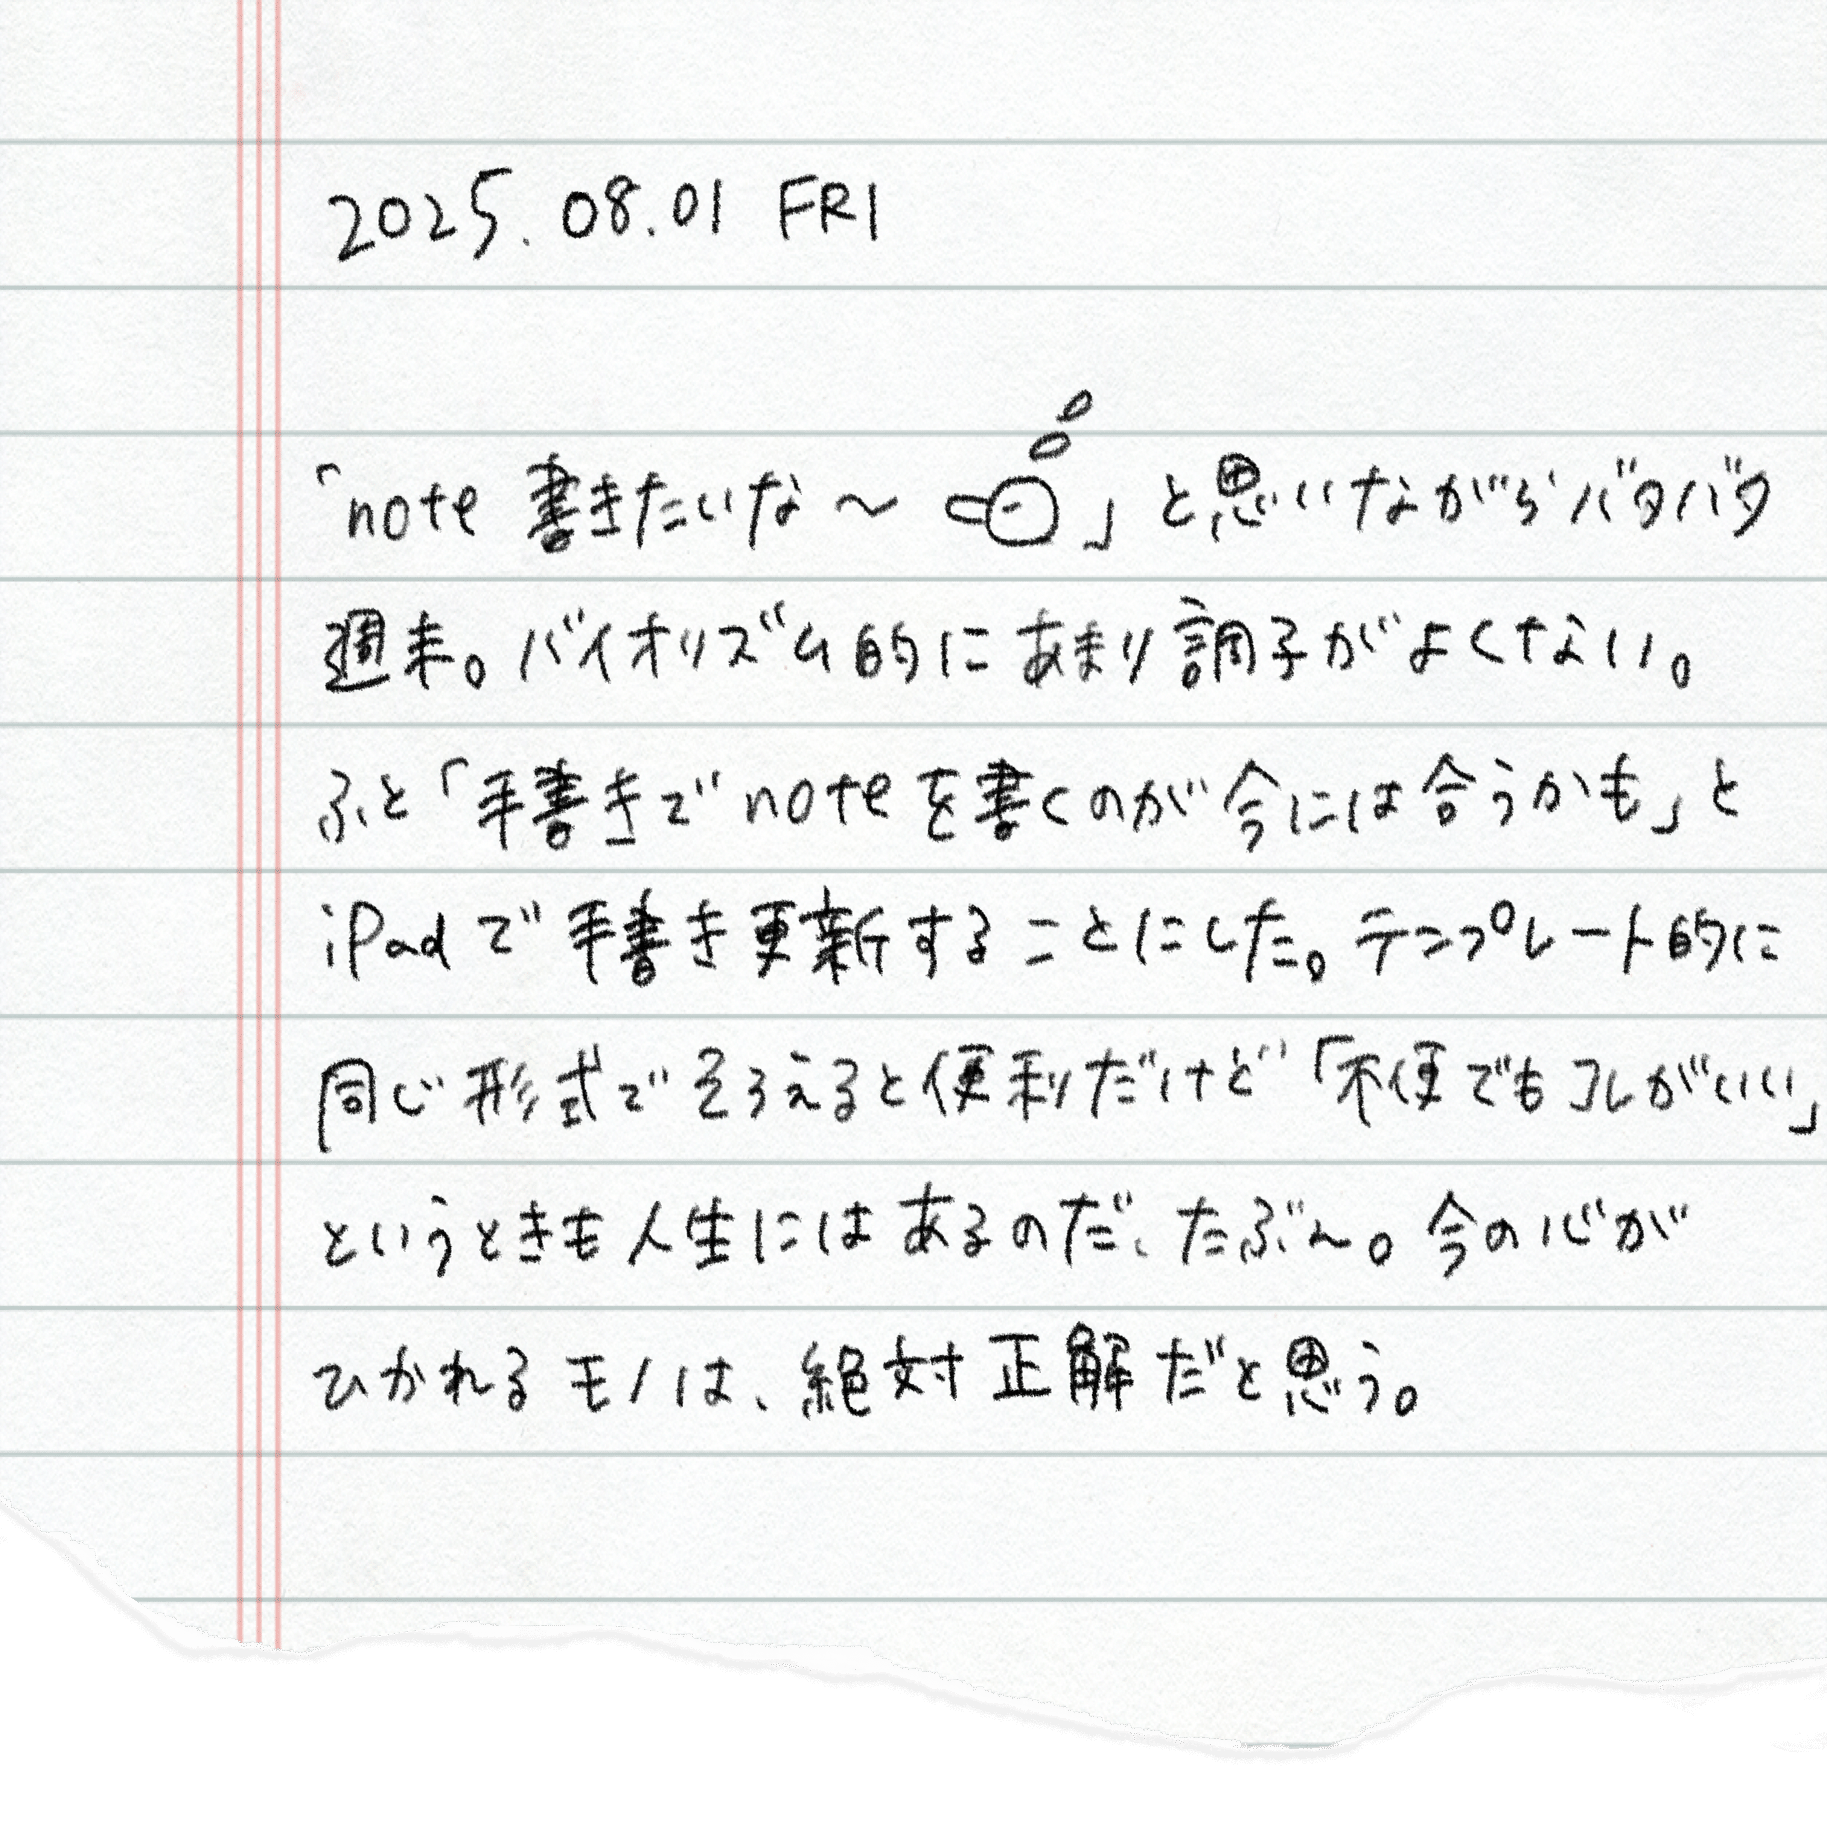 2025.08.01 FRI
「note 書きたいな〜 」と思いながらバタバタ
週末。バイオリズム的にあまり調子がよくない。
ふと「手書きでnoteを書くのが今には合うかも」と
iPadで手書き更新することにした。テンプレート的に
同じ形式でそろえると便利だけど「不便でもコレがいい」
というときも人生にはあるのだ、たぶん。今の心が
ひかれるモノは、絶対正解だと思う。